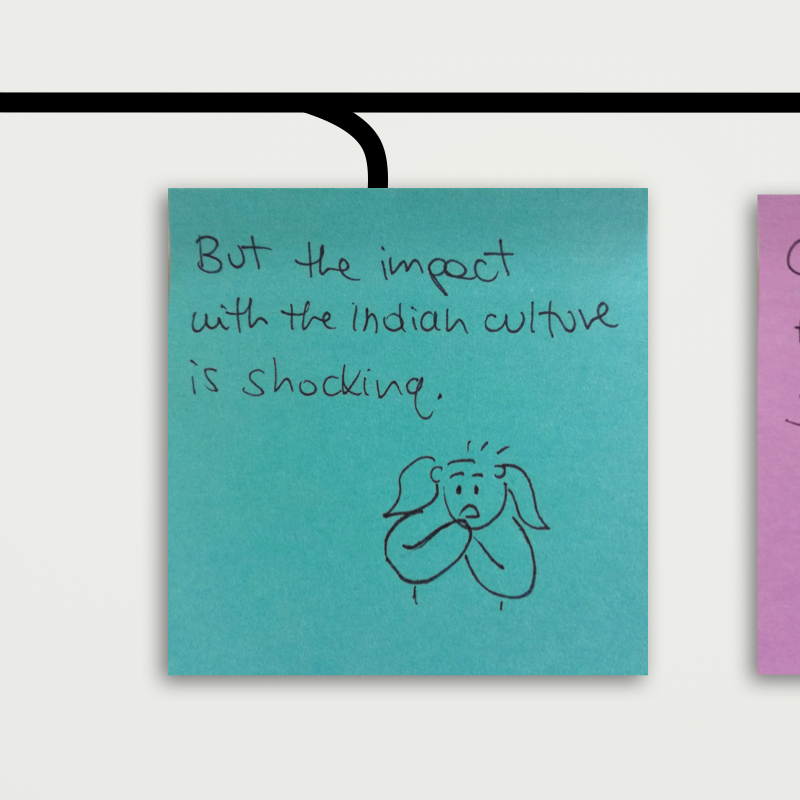 But the impact
with the Indian culture
is shocking.